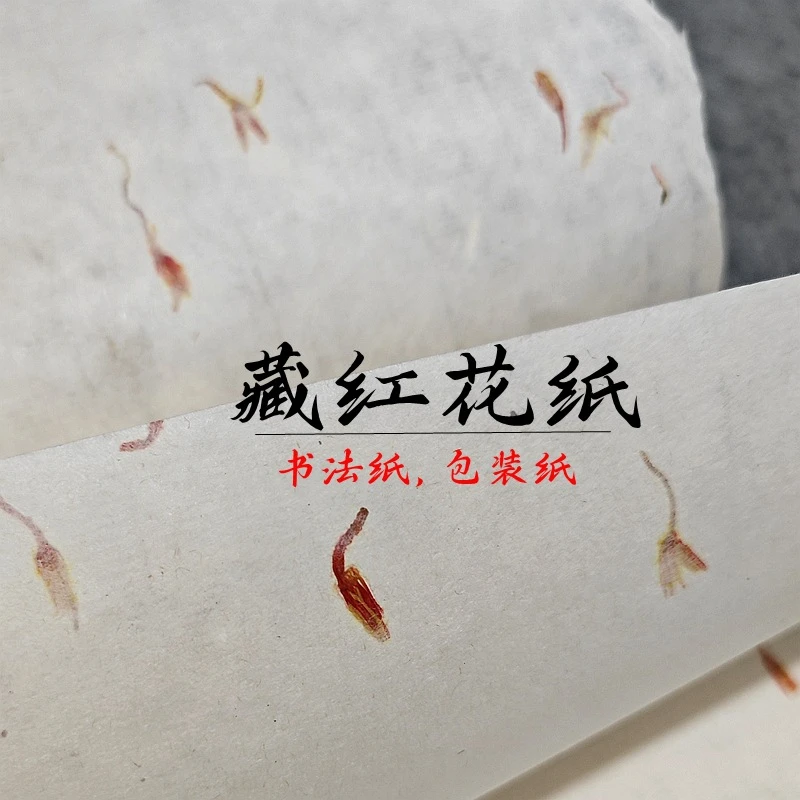 藏红花纸
书法纸,包装纸